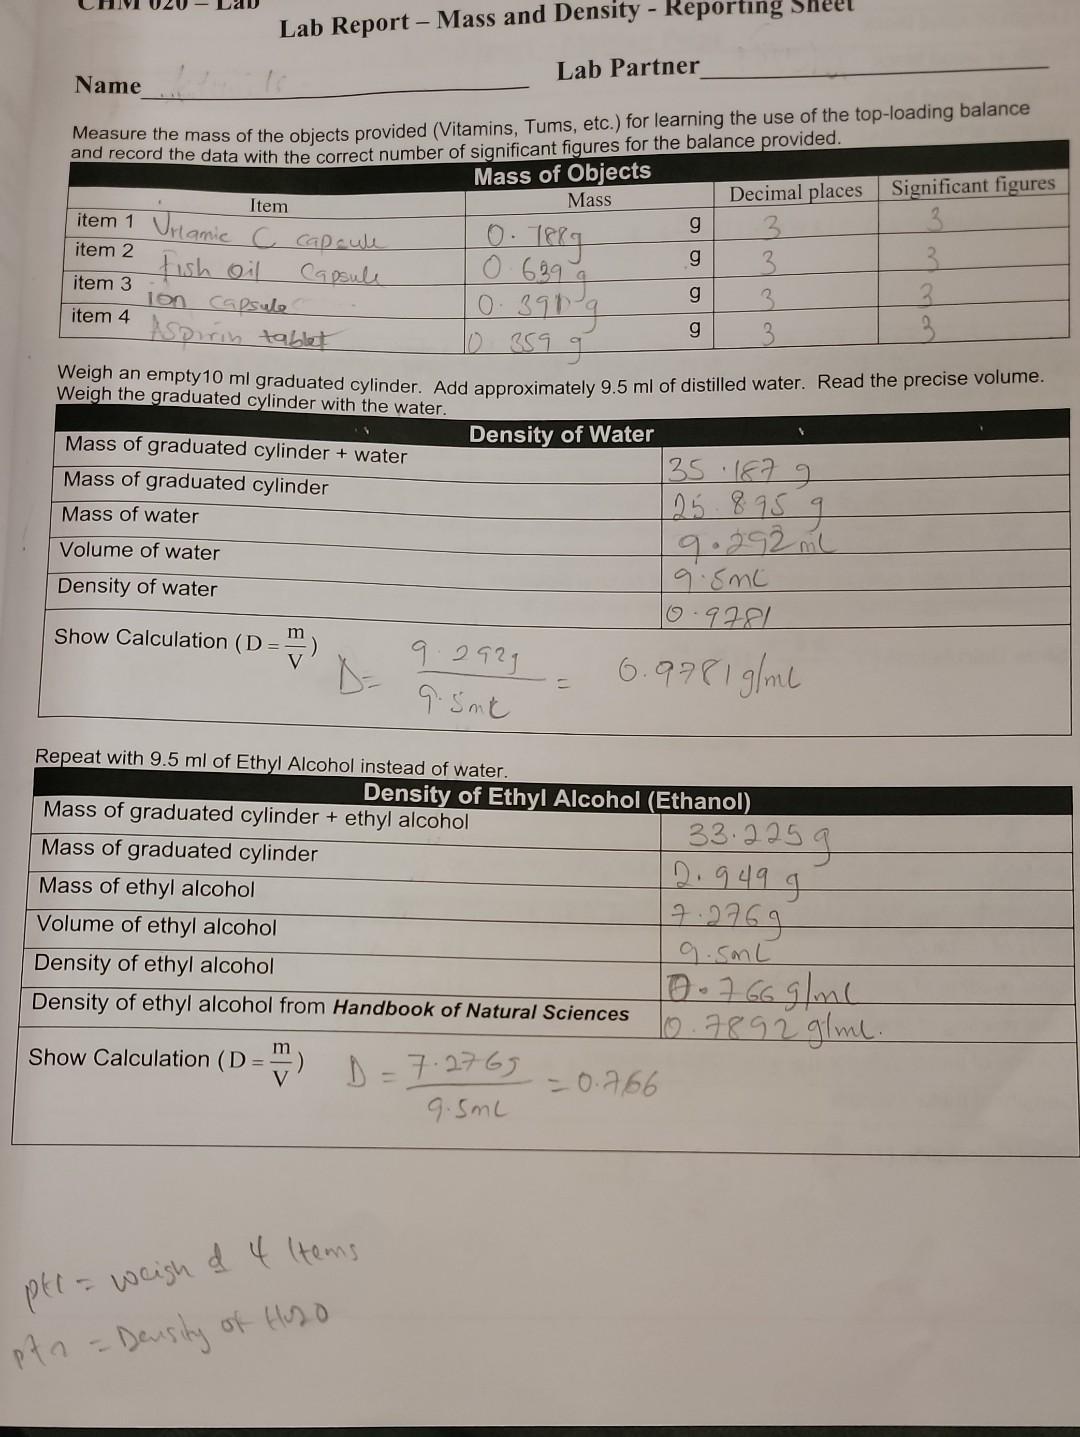 CHM 020 – Lab
Lab Report – Mass and Density - Reporting Sheet
Name
Lab Partner
Measure the mass of the objects provided (Vitamins, Tums, etc.) for learning the use of the top-loading balance
and record the data with the correct number of significant figures for the balance provided.
Mass of Objects
Item Mass Decimal places Significant figures
item 1 C capsule 0.788g g 3 3
item 2 Fish oil Capsule 0.639 g g 3 3
item 3 ion capsule g 3 3
item 4 Aspirin tablet 0.359 g g 3 3
Weigh an empty10 ml graduated cylinder. Add approximately 9.5 ml of distilled water. Read the precise volume.
Weigh the graduated cylinder with the water.
Density of Water
Mass of graduated cylinder + water 35.187 g
Mass of graduated cylinder 25.895 g
Mass of water 9.292 mL
Volume of water 9.5mL
Density of water 0.9781
Show Calculation ( D = m/V ) D = 9.292g / 9.5mL = 0.9781 g/mL
Repeat with 9.5 ml of Ethyl Alcohol instead of water.
Density of Ethyl Alcohol (Ethanol)
Mass of graduated cylinder + ethyl alcohol 33.225 g
Mass of graduated cylinder 2.949 g
Mass of ethyl alcohol 7.276g
Volume of ethyl alcohol 9.5mL
Density of ethyl alcohol 0.766 g/mL
Density of ethyl alcohol from Handbook of Natural Sciences 0.7892 g/mL.
Show Calculation ( D = m/V ) D = 7.276g / 9.5mL = 0.766
pt1 = weigh d 4 Items
= Density of